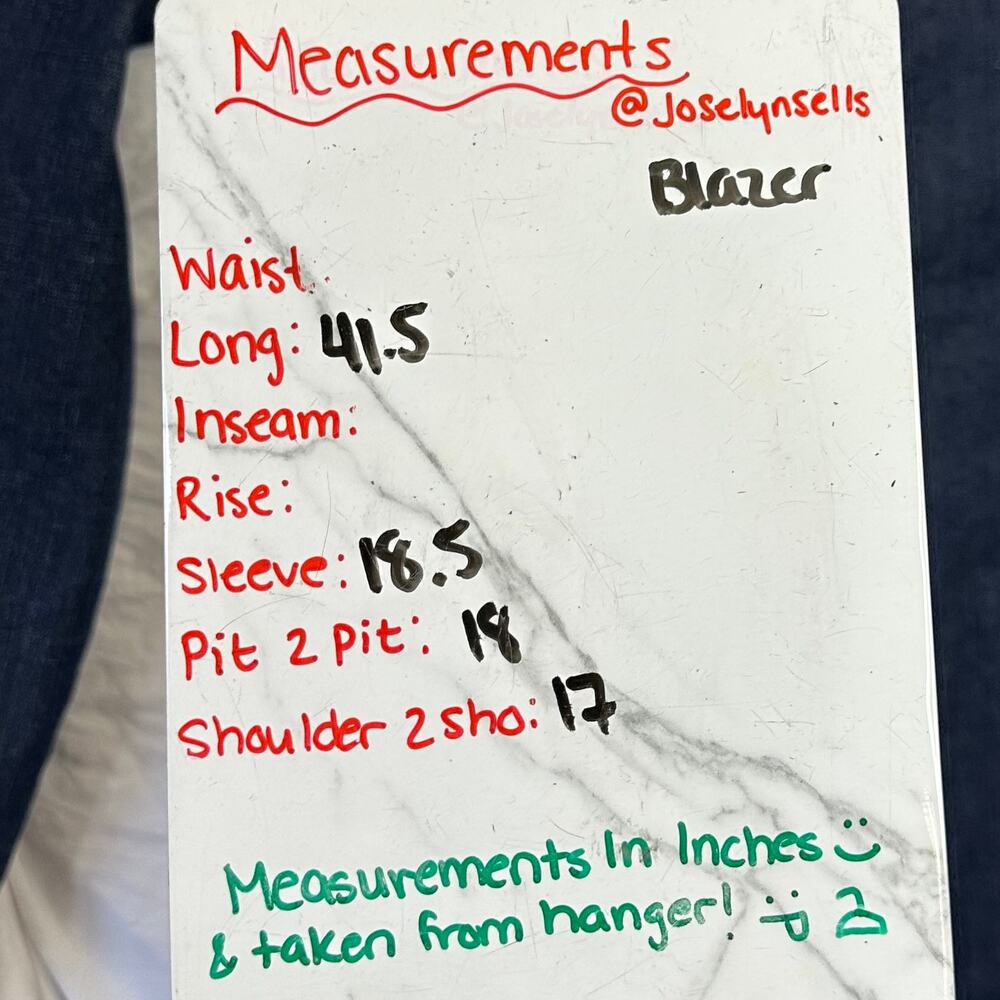 Measurements
@Joselynsells
Blazer
Waist
Long: 41.5
Inseam:
Rise:
Sleeve: 18.5
Pit 2 Pit: 18
Shoulder 2 Sho: 17
Measurements In Inches
& taken from hanger!